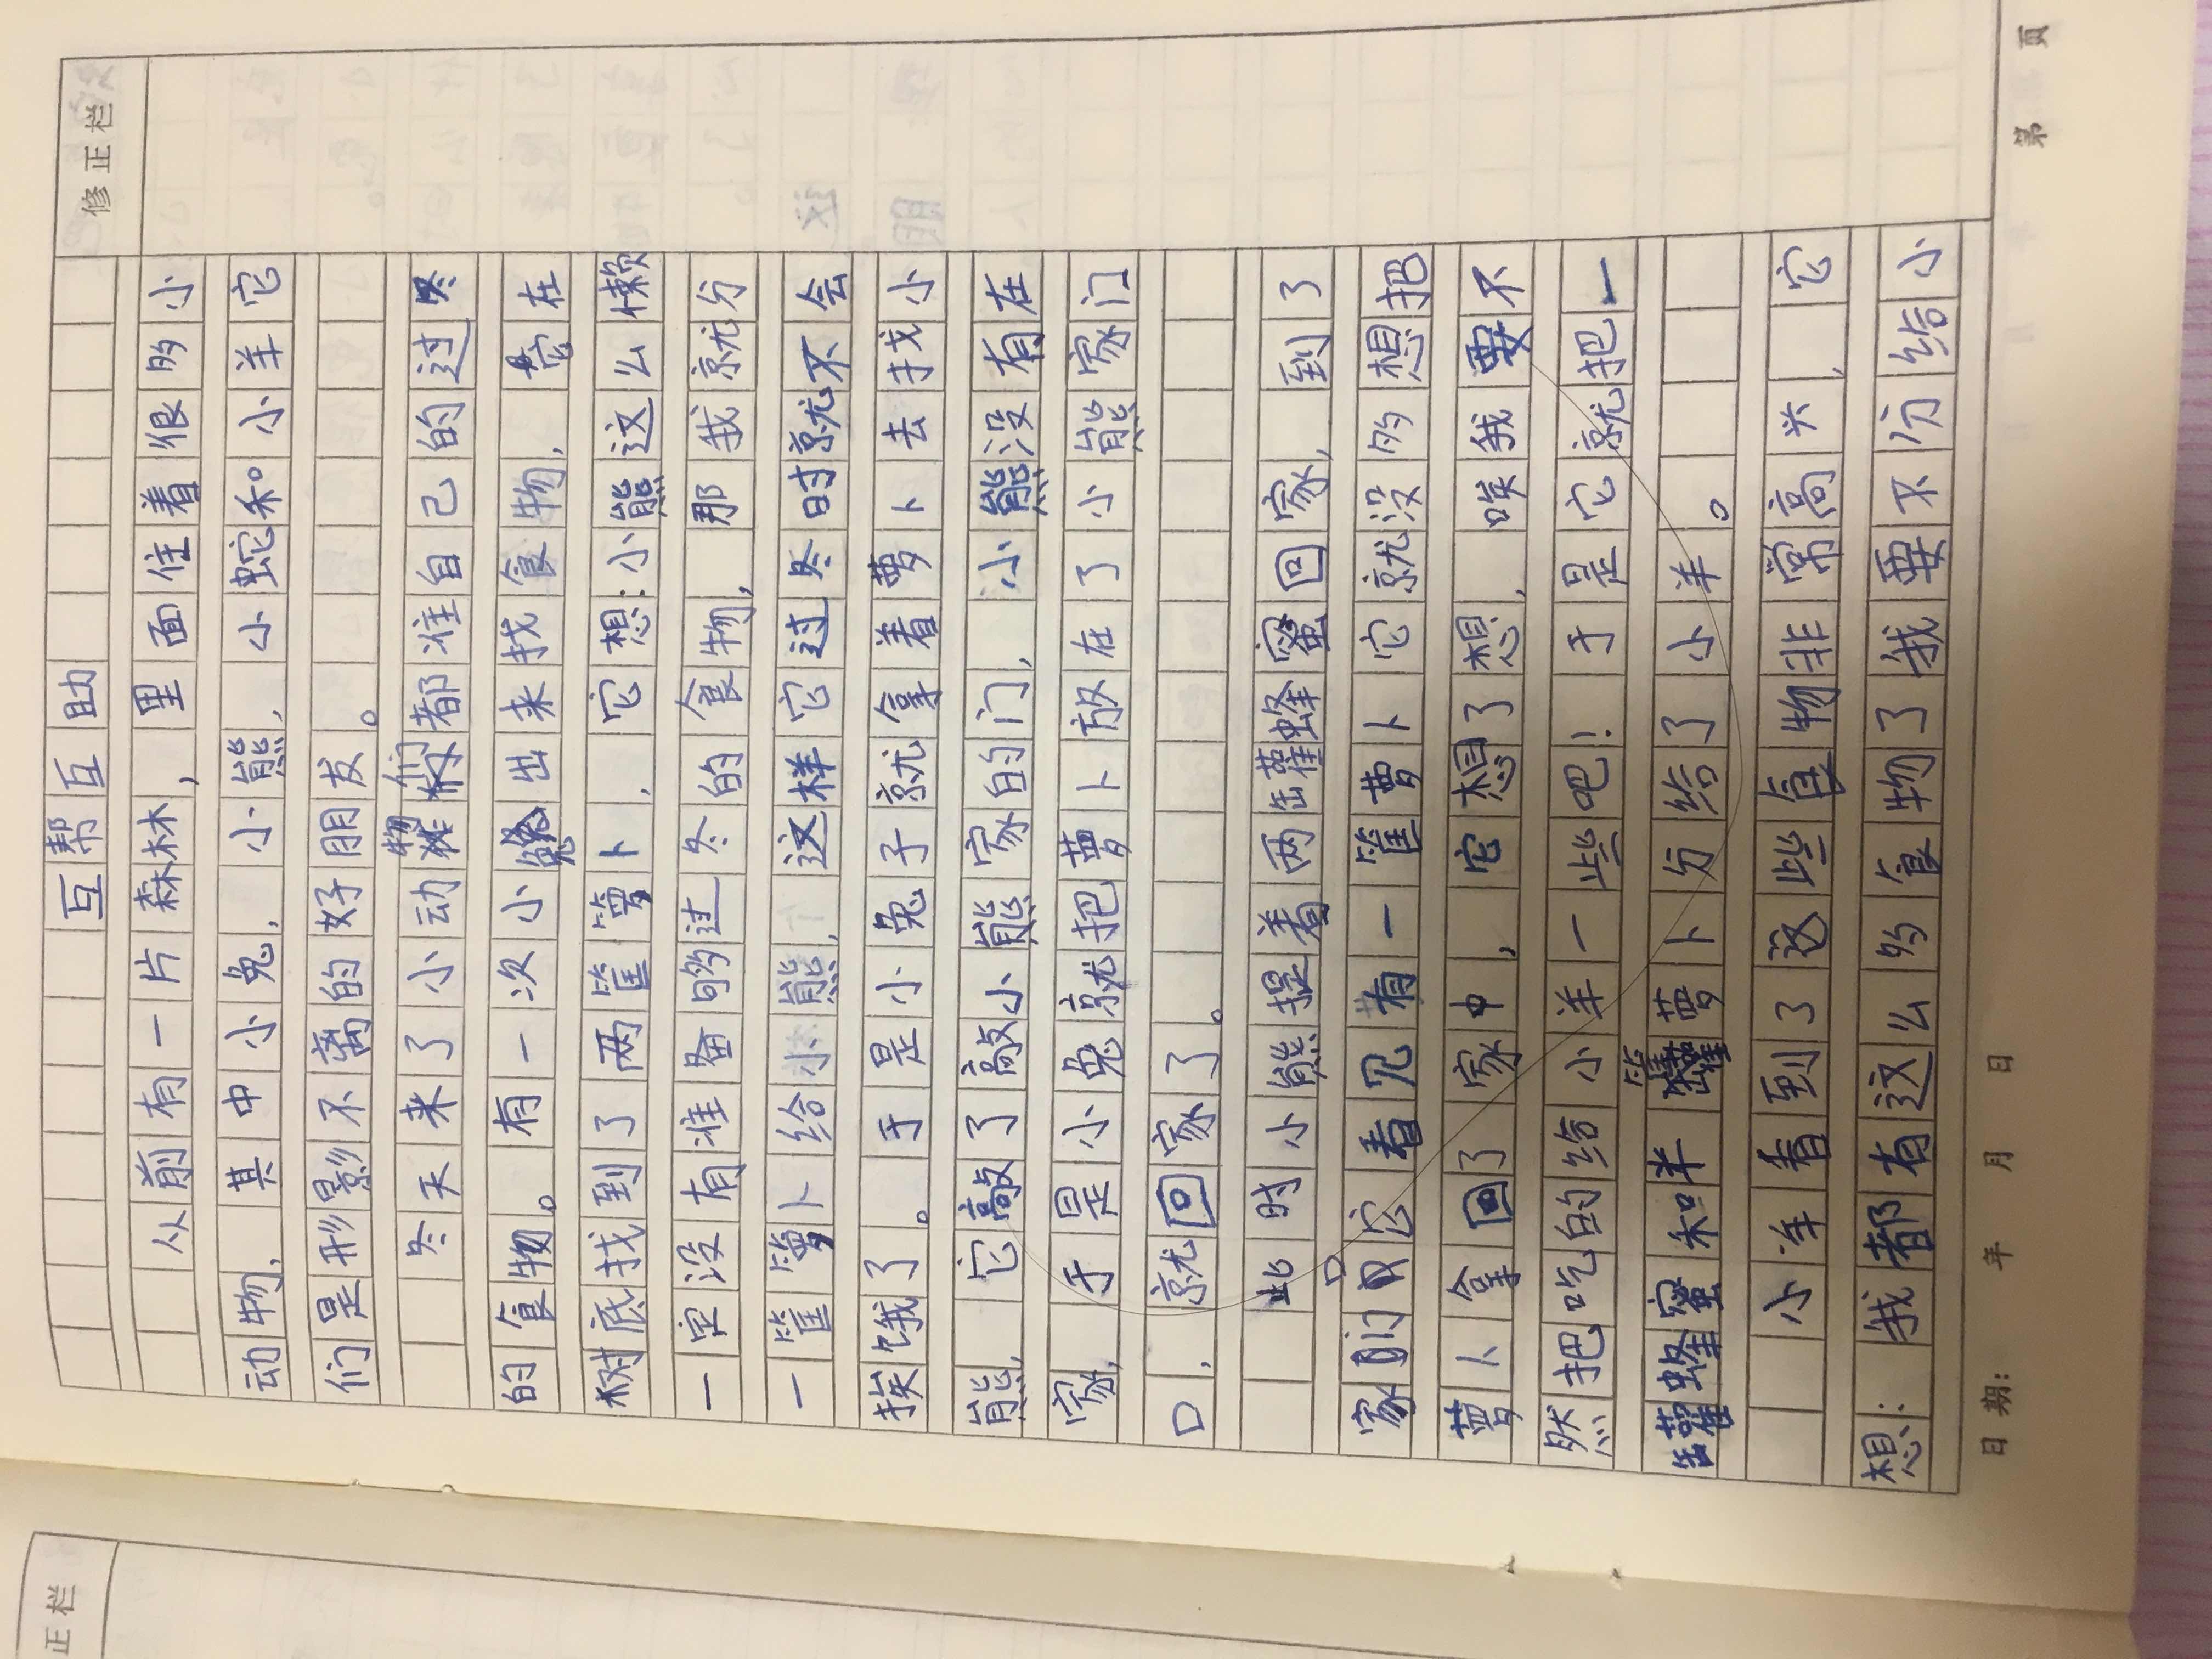 修正栏
互帮互助
从前有一片森林，里面住着很多小
动物，其中小兔，小熊，小蛇和小羊它
们是形影不离的好朋友。
冬天来了小动物们都准自己的过冬
的食物。有一次小兔出来找食物，它在
树底找到了两筐萝卜，它想：小熊这么懒
一定没有准备够过冬的食物，那我就分
一筐萝卜给小熊，这样它过冬时就不会
挨饿了。于是小兔子就拿着萝卜去找小
熊，它敲了敲小熊家的门，小熊没有在
家，于是小兔就把萝卜放在了小熊家门
口，就回家了。
此时小熊提着两罐蜂蜜回家，到了
家门口它看见有一筐萝卜它就没多想把
萝卜拿回了家中，它想了想，唉我要不
然把吃的给小羊一些吧！于是它就把一
罐蜂蜜和半筐萝卜分给了小羊。
小羊看到了这些食物非常高兴，它
想：我都有这么多食物了我要不分给小
日期： 年 月 日 第 页
正栏